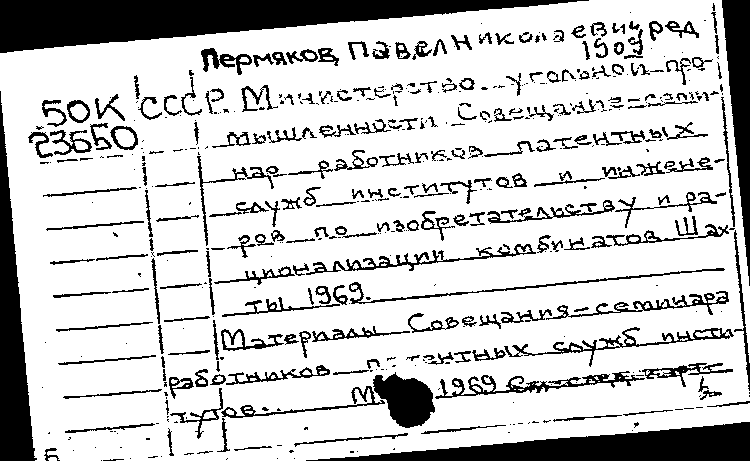 Пермяков, Павел Николаевич, ред
1909
50К СССР. Министерство угольной про-
23650 мышленности Совещание-семи-
нар работников патентных
служб институтов и инжене-
ров по изобретательству и ра-
ционализации комбинатов. Шах-
ты. 1969.
Материалы Совещания-семинара
работников патентных служб инсти-
тутов... 1969 См. след. карт.
Б